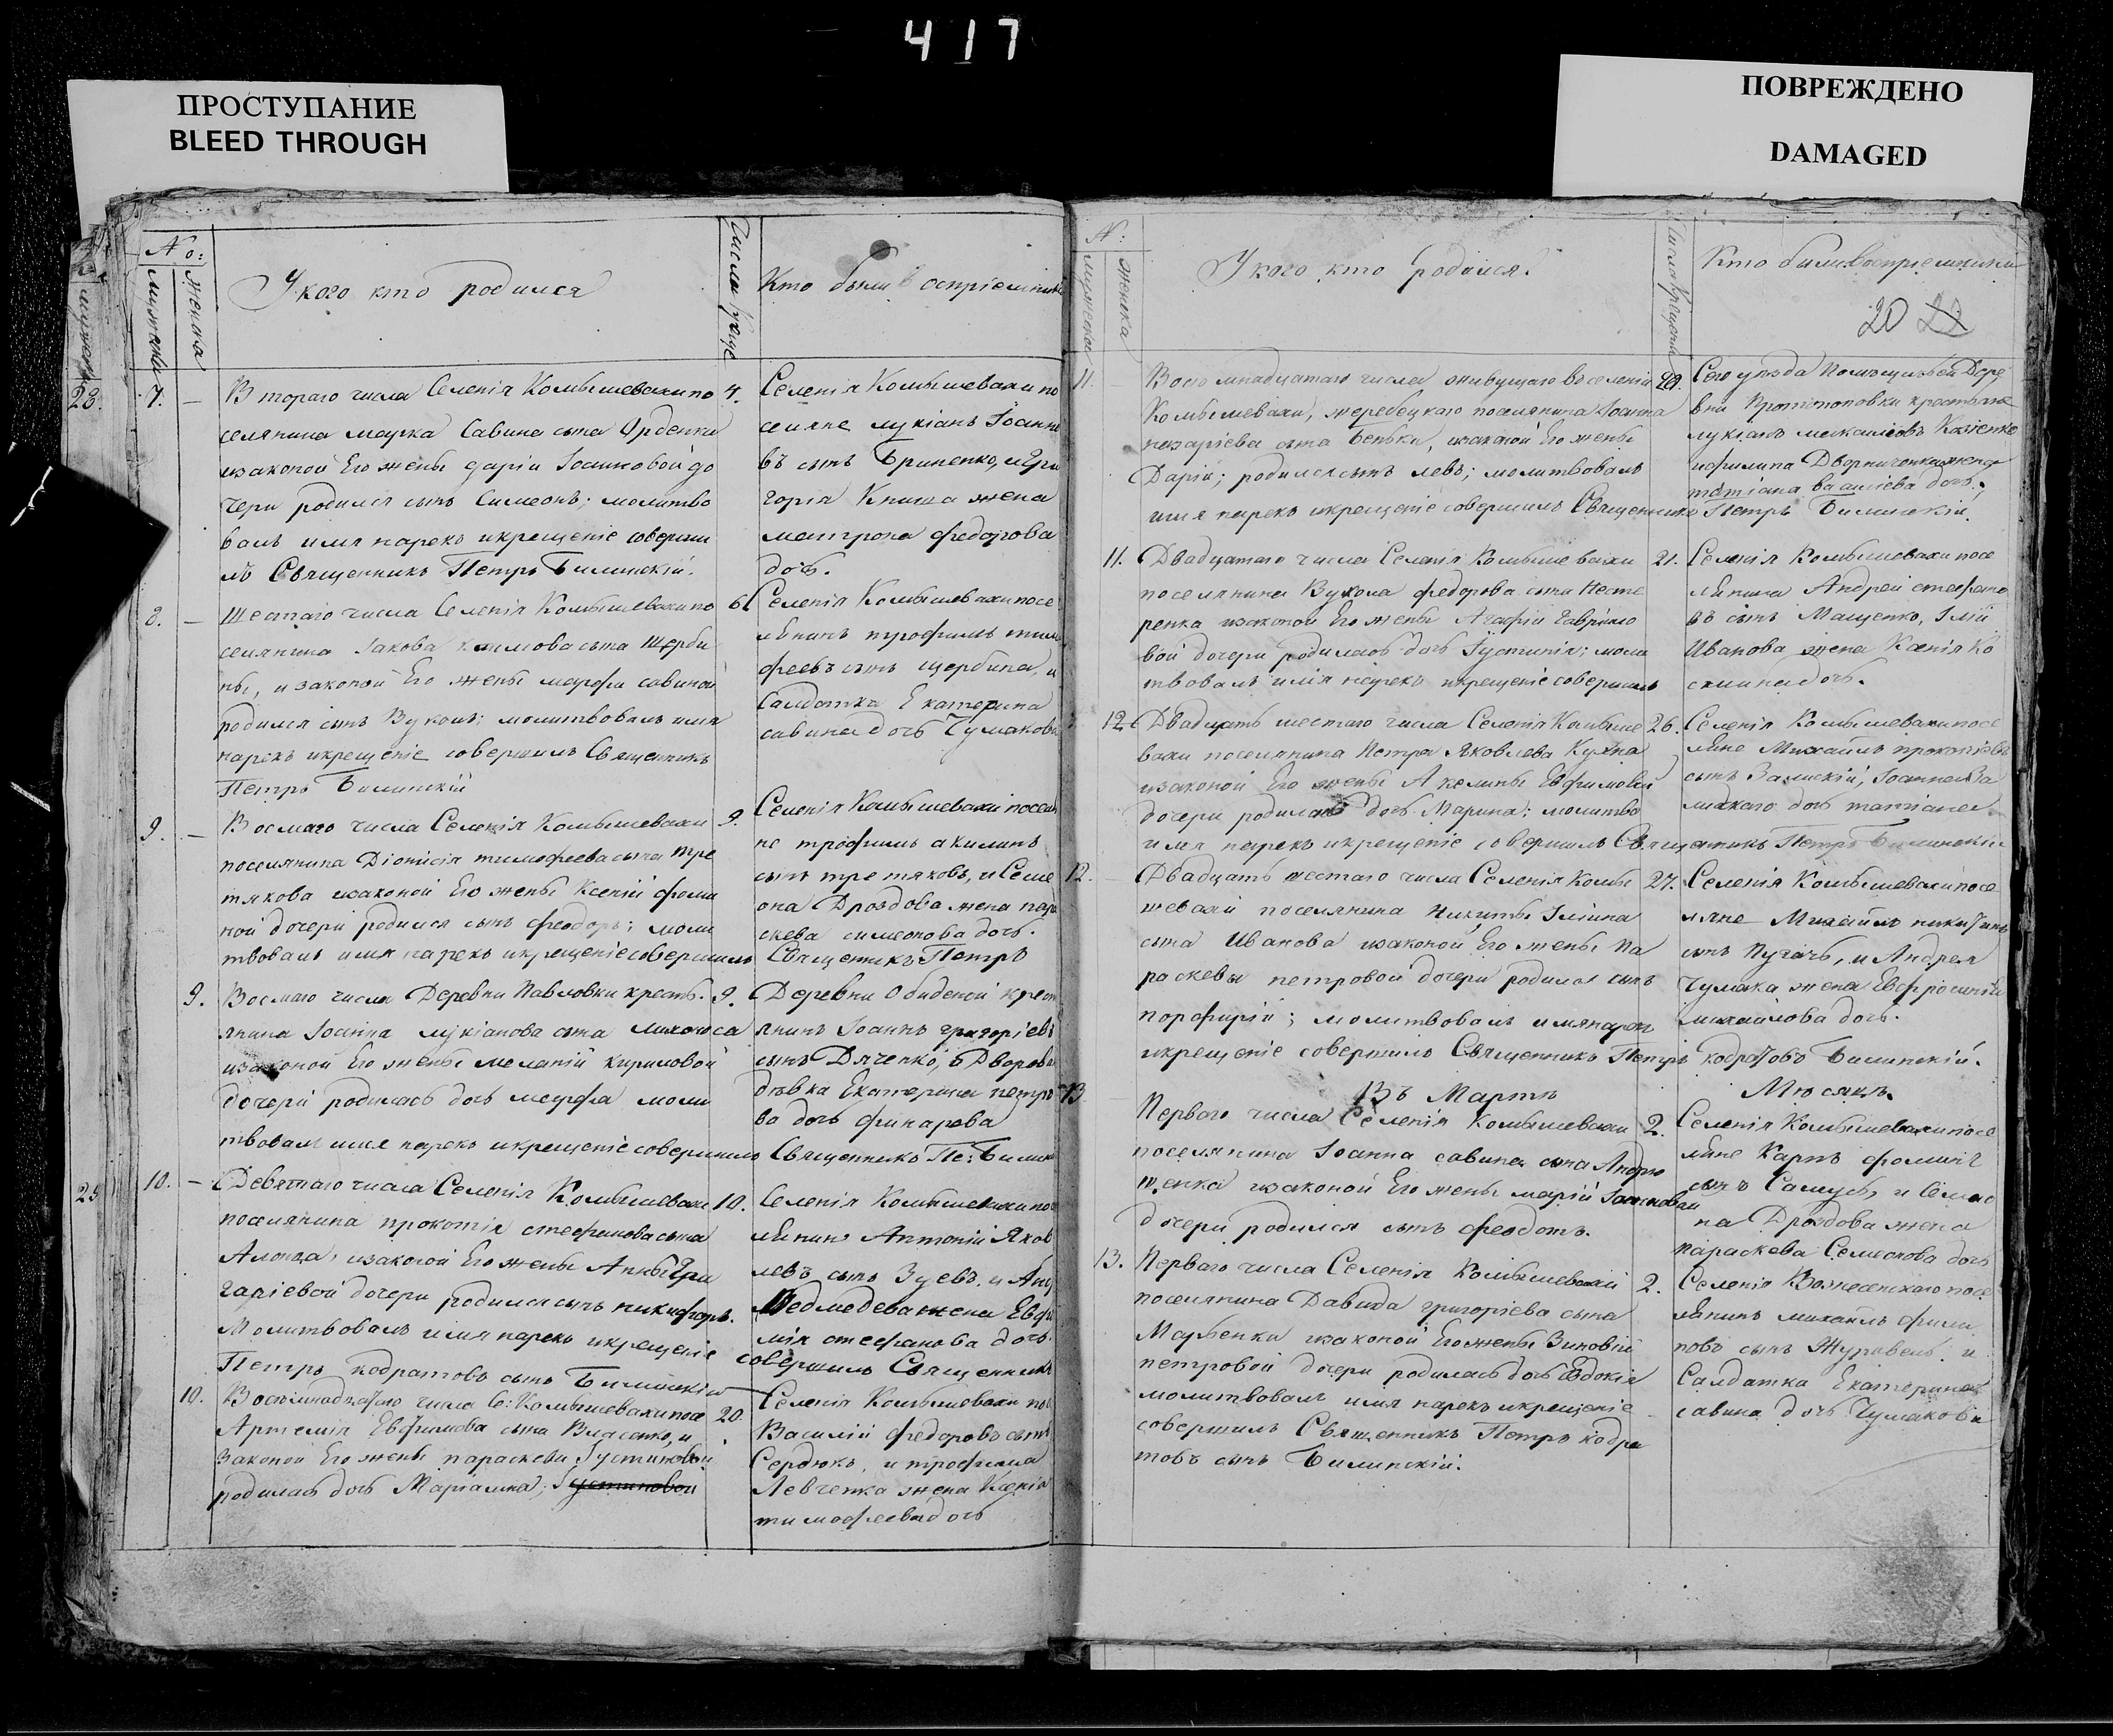 417
ПРОСТУПАНИЕ
BLEED THROUGH
ПОВРЕЖДЕНО
DAMAGED
No:
мужеска
женска
У кого кто родился
Числа
Кто были Воспріемники
28.
7. —
Втораго числа Селенія Комышевахи по
селянина марка Савина сына
изаконой Его жены даріи Іоанновой до
чери родился сынъ Симеонъ; молитво
валъ имя нарекъ икрещеніе соверши
лъ Священникъ Петръ Билинскій.
4.
Селенія Комышевахи по
селяне лукіанъ Іоанно
въ сынъ Гриненко, и Гри
горія Книша жена
матрона федорова
дочь.
8. —
Шестаго числа Селенія Комышевахи по
селянина Іакова сына Щерби
ны, изаконой Его жены марфы савиной
родился сынъ Вуколъ; молитвовалъ имя
нарекъ икрещеніе совершилъ Священникъ
Петръ Билинскій
6
Селенія Комышевахи посе
лянинъ трофимъ тимо
феевъ сынъ щербина, и
Салдатка Екатерина
савина дочь Чумакова
9. —
Восмаго числа Селенія Комышевахи
поселянина Діонисія тимофеева сына тре
тякова изаконой Его жены Ксеніи фоми
ной дочери родился сынъ феодоръ; моли
твовалъ имя нарекъ икрещеніе совершилъ
9.
Селенія Комышевахи поселя
не трофимъ акилинъ
сынъ третяковъ, и Симе
она Дроздова жена пара
скева симеонова дочь.
Священникъ Петръ
9.
Восмаго числа Деревни Павловки кресть
янина Іоанна лукіанова сына
изаконой Его жены меланіи кириловой
дочери родилась дочь марфа моли
твовалъ имя нарекъ икрещеніе совершилъ
9.
Деревни Обиденой крест
янинъ Іоаннъ григоріевъ
сынъ Дяченко, и Дворова
дѣвка Екатерина петро
ва дочь
Священникъ Пе: Билин
29
10. —
Девятаго числа Селенія Комышевахи
поселянина прокопія стефанова сына
изаконой Его жены Анны Гри
горіевой дочери родился сынъ никифоръ.
Молитвовалъ имя нарекъ икрещеніе
Петръ кодратовъ сынъ Билинскій
10.
Селенія Комышевахи посе
лянинъ Антоній Яков
левъ сынъ Зуевъ, и
Медмедева жена Евфи
мія стефанова дочь
совершилъ Священникъ
10.
Восемнадцатаго числа С: Комышевахи посе
Артемія Евфимова сына Власенко, и
Законой Его жены параскевы Іустиновой
родилась дочь Маріамна; Іустиновой
20.
Селенія Комышевахи посе
Василій федоровъ сынъ
Сердюкъ, и трофима
Левченка жена Ксенія
тимофеева дочь
No:
мужеска
женска
У кого кто родился.
Числа крещенія
Кто были воспріемники
20 22
11.
Восемнадцатаго числа живущаго в селеніи
Комышевахи, жеребецкаго поселянина Іоанна
сына Бенька, изаконой Его жены
Даріи; родился сынъ левъ; молитвовалъ
имя нарекъ икрещеніе совершилъ Священникъ
20.
Сего уѣзда Помѣщичьей Дере
вни Протопоповки крестьян
лукіанъ
ифилипа жена
татіана василіева дочь.
Петръ Билинскій
11.
Двадцатаго числа Селенія Комышевахи
поселянина Вукола федорова сына Несте
ренка изаконой Его жены Агафіи Гавріило
вой дочери родилась дочь Іустинія; моли
твовалъ имя нарекъ икрещеніе совершилъ
21.
Селенія Комышевахи посе
лянинъ Андрей стефано
въ сынъ Мащенко, Іліи
Иванова жена Ксенія Ко
смина дочь.
12
Двадцать шестаго числа Селенія Комыше
вахи поселянина Петра Яковлева Кухна
изаконой Его жены Акилины Евфимовой
дочери родилась дочь Марина; молитво
имя нарекъ икрещеніе совершилъ Священникъ Петръ Билинскій
26.
Селенія Комышевахи посе
ляне Михаилъ прокопіевъ
сынъ Іоанна За
лизкаго дочь татіана.
12. —
Двадцать шестаго числа Селенія Комы
шевахи поселянина Никиты Іліина
сына Иванова изаконой Его жены Па
раскевы петровой дочери родился сынъ
порфирій; молитвовалъ имя нарекъ
икрещеніе совершилъ Священникъ Петръ кодратовъ Билинскій.
27.
Селенія Комышевахи посе
ляне Михаилъ никитинъ
сынъ Пугачь, и Андрея
Чумака жена Евфросинія
михаилова дочь.
Въ Мартѣ Мѣсяцѣ
13
Перваго числа Селенія Комышевахи
поселянина Іоанна савина сына Андрю
щенка изаконой Его жены маріи Іоанновой
дочери родился сынъ феодотъ.
2.
Селенія Комышевахи посе
ляне Карпъ фоминъ
сынъ Самусь, и Симео
на Дроздова жена
параскева Семеонова дочь
13.
Перваго числа Селенія Комышевахи
поселянина Давида григоріева сына
изаконой Его жены Зиновіи
петровой дочери родилась дочь Евдокія
молитвовалъ имя нарекъ икрещеніе
совершилъ Священникъ Петръ кодра
товъ сынъ Билинскій.
2.
Селенія Вознесенскаго посе
лянинъ михаилъ фили
повъ сынъ Журавель и
Салдатка Екатерина
савина дочь Чумакова